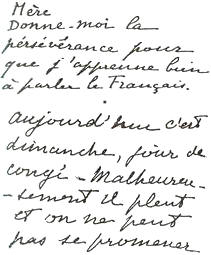 Mère
Donne-moi la
pérsévérance pour
que j'apprenne bien
à parler le Français.
Aujourd'hui c'est
dimanche, jour de
congé - Malheureu-
-sement il pleut
et on ne peut
pas se promener